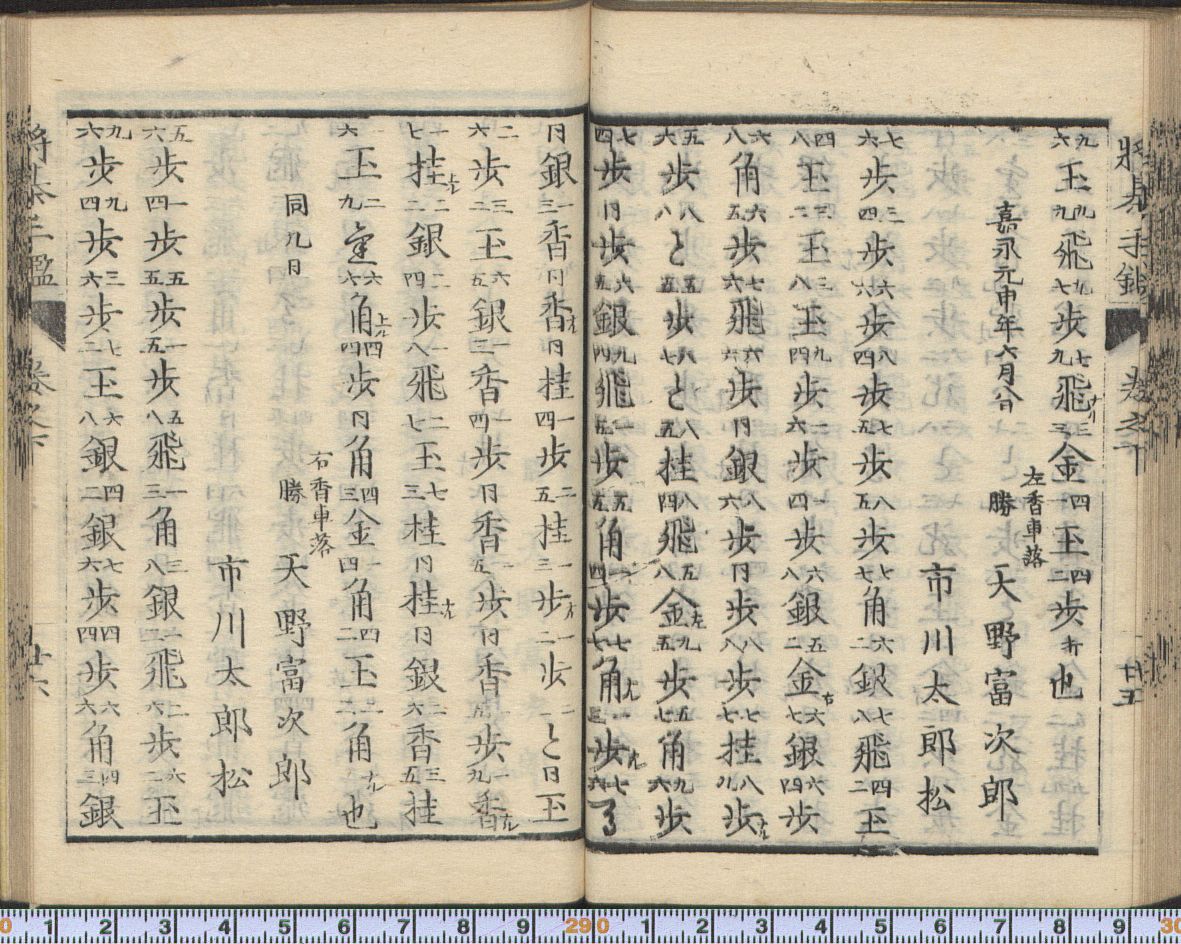 将棊手鑑 巻之下 廿五
九六玉九九飛九七歩七九飛ナル三三金四一玉四二歩打也
嘉永元申年六月分
左香車落
勝 天野富次郎
市川太郎松
七六歩三四歩六六歩八四歩七五歩八五歩七七角六二銀七八飛四二玉
四八玉三二玉三八玉九四歩一六歩一四歩六八銀五二金右六七銀六四歩
六八角六五歩七六飛六六歩同銀八六歩同歩八八歩七七桂八九歩ナル
五六歩八八と五五歩八七と八五桂八四飛五八金左九五歩五七角九六歩
七四歩同歩六五銀九四飛歩五五角歩七七角ナル一三歩ナル七六了
同銀一三香同香ナル同桂一四歩二五桂一三歩ナル一二歩と同玉
二六歩三二玉六五銀一三香一四歩同香一五歩同香歩九一香ナル
一七桂ナル二二銀二四歩一八飛二七玉七三桂同桂ナル同銀二六香三五桂
一六玉二九金六六角四四歩同角四三金一四角四二玉三二角ナル也
同九日
右香車落
勝 天野富次郎
市川太郎松
五六歩一四歩五五歩一五歩五八飛一三角三八銀二二飛一六歩六二玉
九六歩九四歩三六歩七二玉六八銀四二銀七六歩四四歩六六角四三銀
将棊手鑑 巻之下 廿六